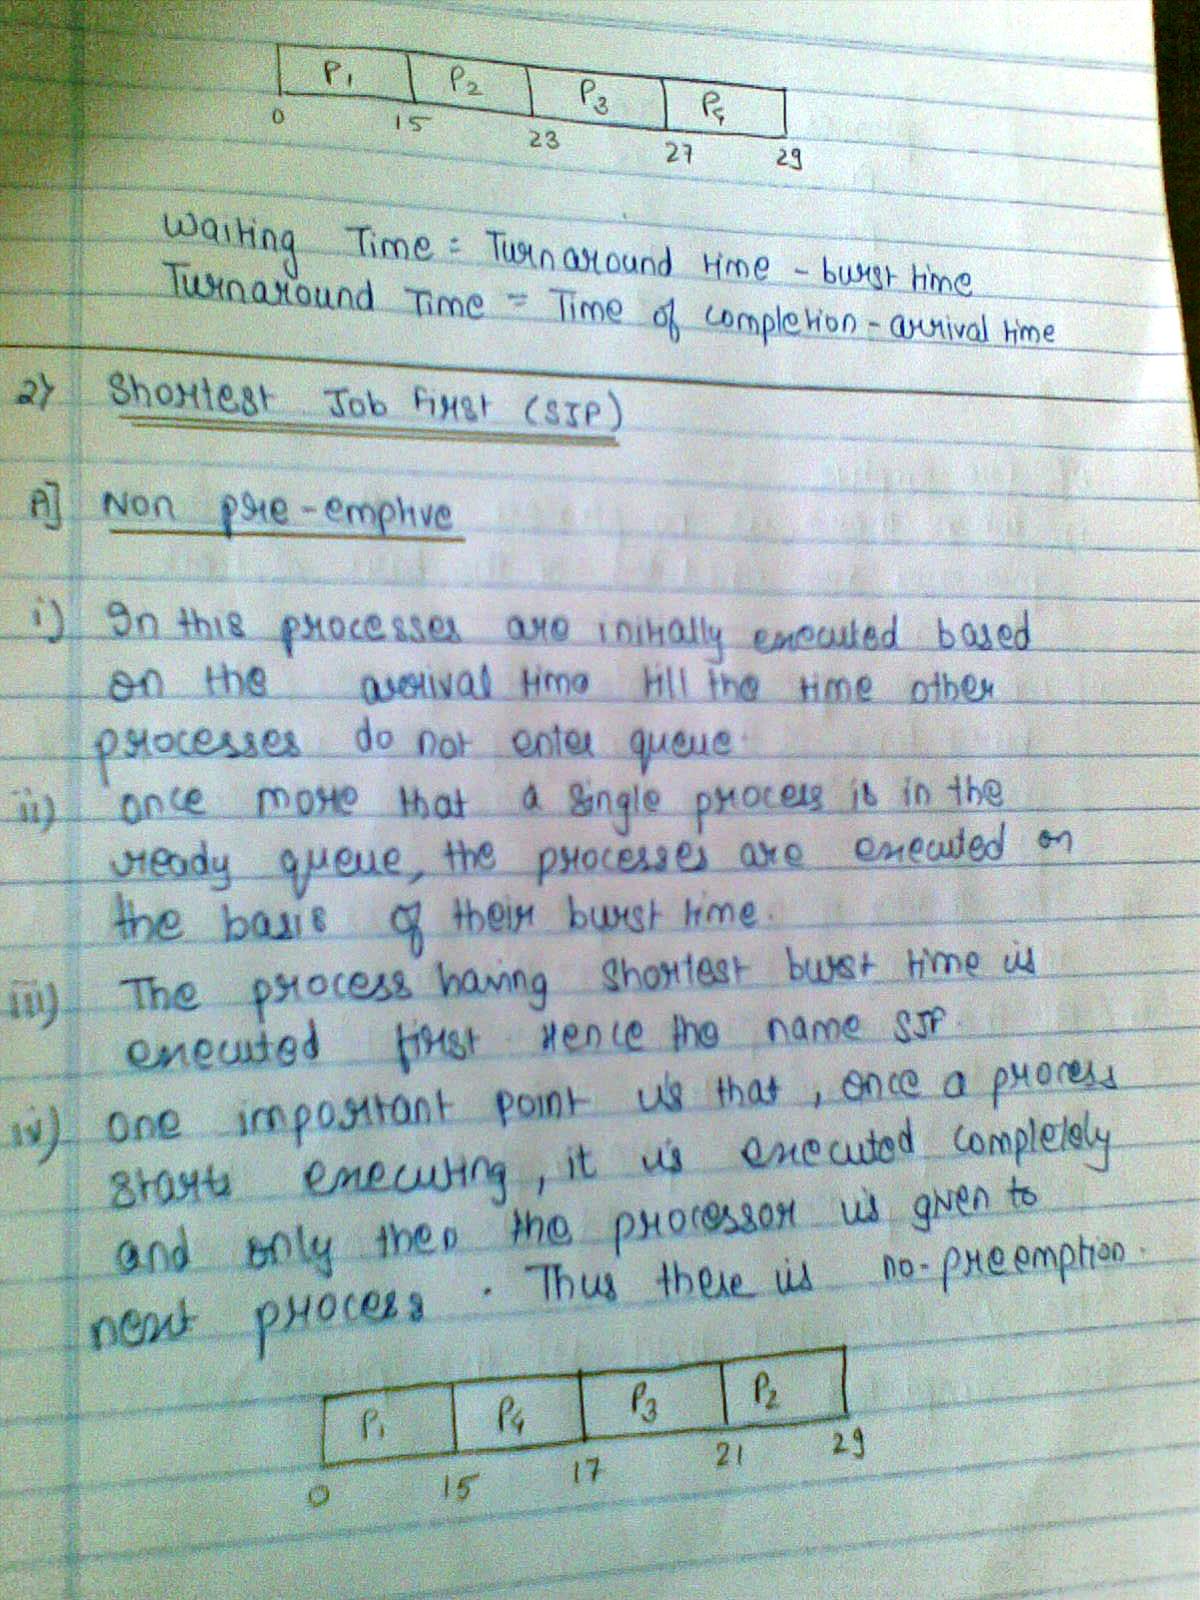 P1 P2 P3 P4
0 15 23 27 29
Waiting Time = Turnaround time - burst time
Turnaround Time = Time of completion - arrival time
2) Shortest Job First (SJF)
A] Non pre-emptive
i) In this processes are initially executed based
on the arrival time till the time other
processes do not enter queue.
ii) once more that a single process is in the
ready queue, the processes are executed on
the basis of their burst time.
iii) The process having shortest burst time is
executed first. Hence the name SJF.
iv) One important point is that, once a process
starts executing, it is executed completely
and only then the processor is given to
next process. Thus there is no-preemption.
P1 P4 P3 P2
0 15 17 21 29